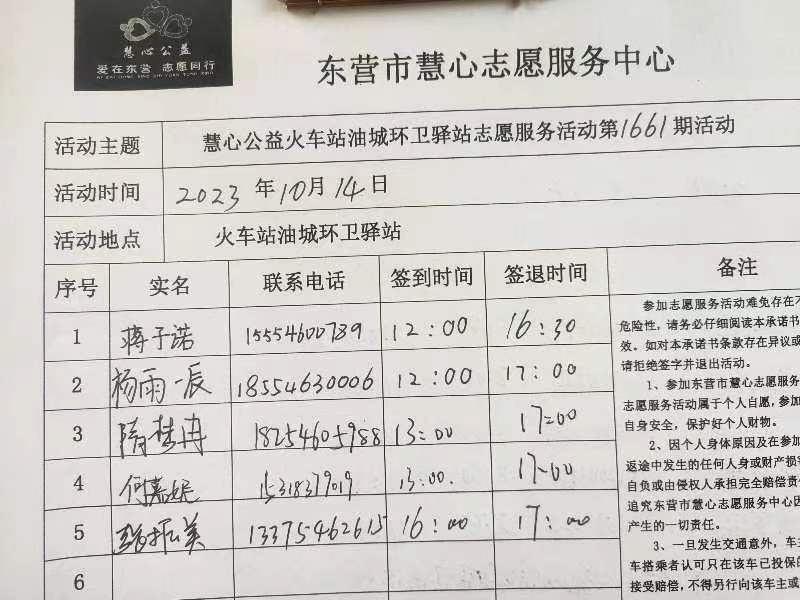 慧心公益
爱在东营 志愿同行
东营市慧心志愿服务中心
活动主题 慧心公益火车站油城环卫驿站志愿服务活动第1661期活动
活动时间 2023年10月14日
活动地点 火车站油城环卫驿站
序号 实名 联系电话 签到时间 签退时间 备注
1 蒋子诺 15554600789 12:00 16:30
2 杨雨辰 18554630006 12:00 17:00
3 隋梦冉 18254605988 13:00 17:00
4 何嘉妮 15318379019 13:00. 17:00
5 美 13375462615 16:00 17:00
6
参加志愿服务活动难免存在不
危险性,请务必仔细阅读本承诺书
效。如对本承诺书条款存在异议或
请拒绝签字并退出活动。
1、参加东营市慧心志愿服务
志愿服务活动属于个人自愿,参加
自身安全,保护好个人财物。
2、因个人身体原因及在参加
返途中发生的任何人身或财产损害
自负或由侵权人承担完全赔偿责
追究东营市慧心志愿服务中心因
产生的一切责任。
3、一旦发生交通意外,车主
车搭乘者认可只在该车已投保的
接受赔偿,不得另行向该车主或